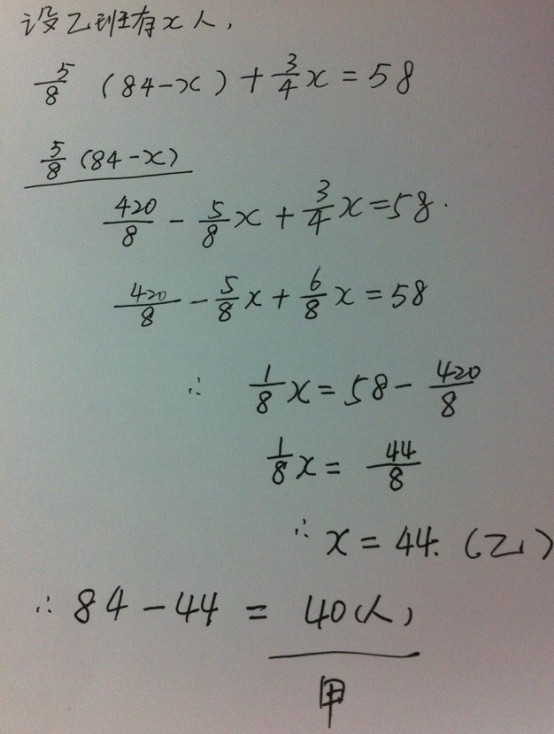 设乙班有x人,
5/8 (84-x)+3/4x=58
5/8(84-x)
420/8-5/8x+3/4x=58.
420/8-5/8x+6/8x=58
∴ 1/8x=58-420/8
1/8x=44/8
∴ x=44.(乙)
∴ 84-44=40(人)
甲